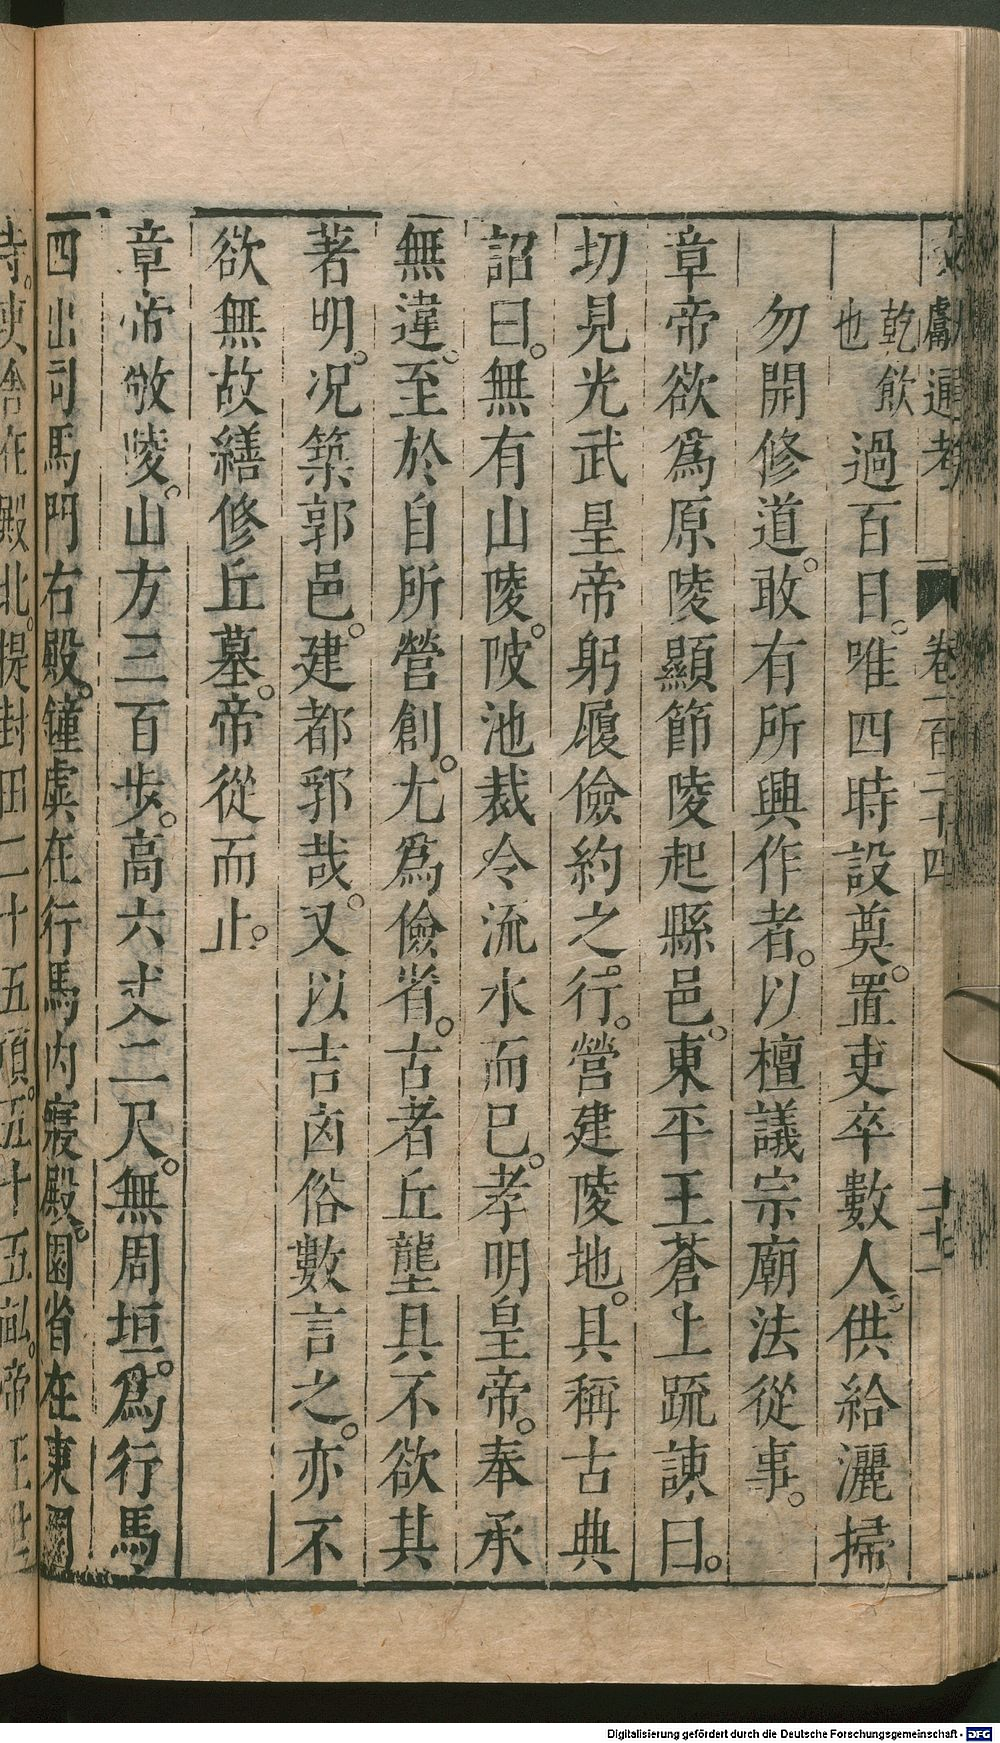 獻通考 卷一百二十四
乾飲
也
過百日。唯四時設奠。置吏卒數人。供給灑掃
勿開修道。敢有所興作者。以擅議宗廟法從事。
章帝欲爲原陵顯節陵起縣邑。東平王蒼上疏諫曰。
切見光武皇帝躬履儉約之行。營建陵地。具稱古典
詔曰。無有山陵。陂池裁令流水而已。孝明皇帝。奉承
無違。至於自所營創。尤爲儉省。古者丘壟具不欲其
著明。况築郭邑。建都郛哉。又以吉凶俗數言之。亦不
欲無故繕修丘墓。帝從而止。
章帝敬陵。山方三百步。高六丈二尺。無周垣。爲行馬
四出司馬門右殿。鐘虡在行馬內寢殿。園省在東園
寺。吏舍在殿北。提封田二十五頃。五十五畝。帝
Digitalisierung gefördert durch die Deutsche Forschungsgemeinschaft - DFG